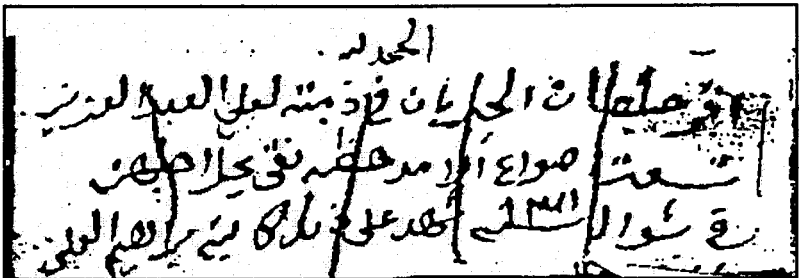 الحمد لله
أقر صلطان الجربان في ذمته لعلي العبد العزيز
تسعت اصواع ألا مد حنطه نقي يحل اجلهن
في شوال سنة شهد على ذلك كاتبه براهيم العلي